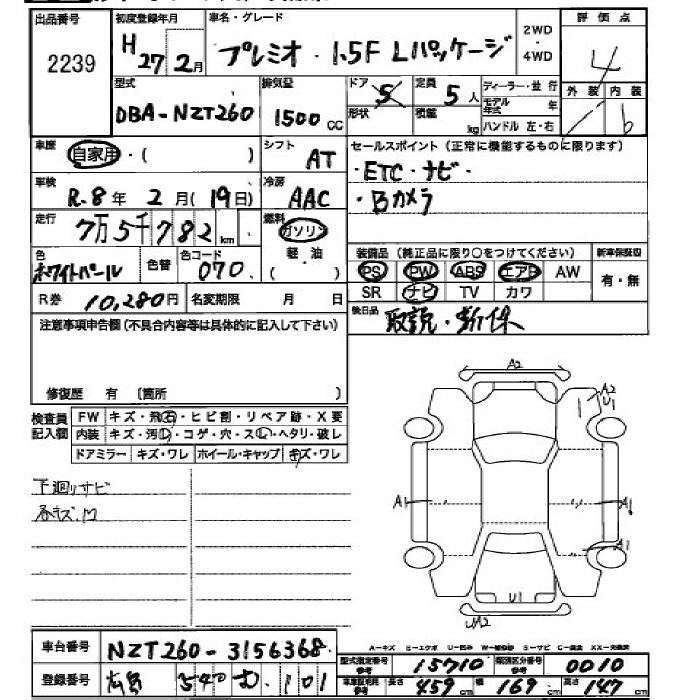 出品番号 2239
初度登録年月 H27 2月
車名・グレード プレミオ・1.5F Lパッケージ
2WD ・ 4WD
評価点 4
型式 DBA-NZT260
排気量 1500 CC
ドア 5 形状
定員 5人
積載 kg
ディーラー・並行
モデル年式 年
ハンドル 左・右
外装 内装 b
車歴 自家用・( )
シフト AT
セールスポイント (正常に機能するものに限ります)
・ETC・ナビ・
・Bカメラ
車検 R.8年 2月(19日)
冷房 AAC
走行 7万5千782km
燃料 ガソリン
軽・油
( )
色 ホワイトパール 色替 色コード 070
装備品 (純正品に限り○をつけてください) 新車保証書
PS PW ABS エアB AW 有・無
SR ナビ TV カワ
R券 10,280円 名変期限 月 日
後日品 取説・新保
注意事項申告欄(不具合内容等は具体的に記入して下さい)
修復歴 有 〔箇所 〕
検査員記入欄
FW キズ・飛石・ヒビ割・リペア跡・X要
内装 キズ・汚レ・コゲ・穴・スレ・ヘタリ・破レ
ドアミラー キズ・ワレ ホイール・キャップ キズ・ワレ
下廻りサビ
各キズ.凹
A2
A2
U1
A1
A1
A1
U1
UA2
車台番号 NZT260-3156368
A-キズ S-エクボ U-凹み W-補修跡 S-サビ C-腐食 XX-交換済
型式指定番号 参考 15710 類別区分番号 参考 0010
登録番号 540 む・101
車庫証明用 参考 長さ 459cm 幅 169cm 高さ 147cm